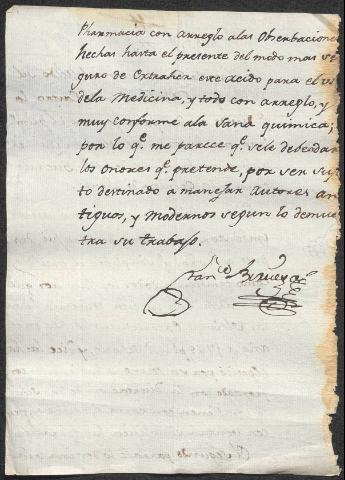 Pharmacia con arreglo alas Obserbaciones
hechas hasta el presente del modo mas se
guro de Extraher este acido para el us
dela Medicina, y todo con arreglo, y
muy conforme ala sana quimica;
por lo q.e me parece q.e sele debe dar
los onores q.e pretende, por ser suje
to destinado a manejar Autores an
tiguos, y modernos segun lo demues
tra su trabajo.
Fran.co